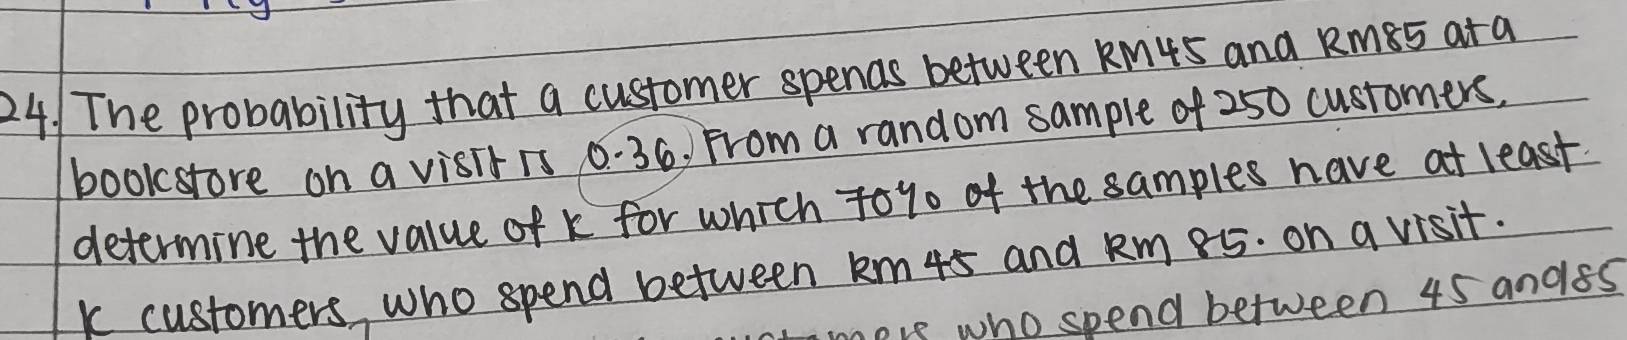 24. The probability that a customer spends between RM45 and RM85 at a
bookstore on a visit is 0.36. From a random sample of 250 customers,
determine the value of k for which 70% of the samples have at least
k customers, who spend between Rm 45 and Rm 85. on a visit.
who spend between 45 and 85